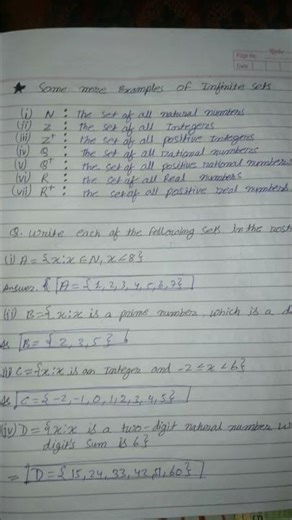 Page No.
Date
★ Some more Examples of Infinite sets
(i) N : The set of all natural numbers
(ii) Z : the set of all Integers
(iii) Z⁺ : the set of all positive Integers
(iv) Q : The set of all rational numbers
(v) Q⁺ : the set of all positive rational numbers
(vi) R : the set of all Real numbers
(vii) R⁺ : the set of all positive real numbers.
Q. Write each of the following sets in the
(i) A = {x : x ∈ N, x < 8}
Answer. A = {1, 2, 3, 4, 5, 6, 7}
(ii) B = {x : x is a prime number, which is a
B = {2, 3, 5}
C = {x : x is an Integer and -2 ≤ x < 6}
C = {-2, -1, 0, 1, 2, 3, 4, 5}
(iv) D = {x : x is a two-digit natural number
digit's sum is 6}
= D = {15, 24, 33, 42, 51, 60}